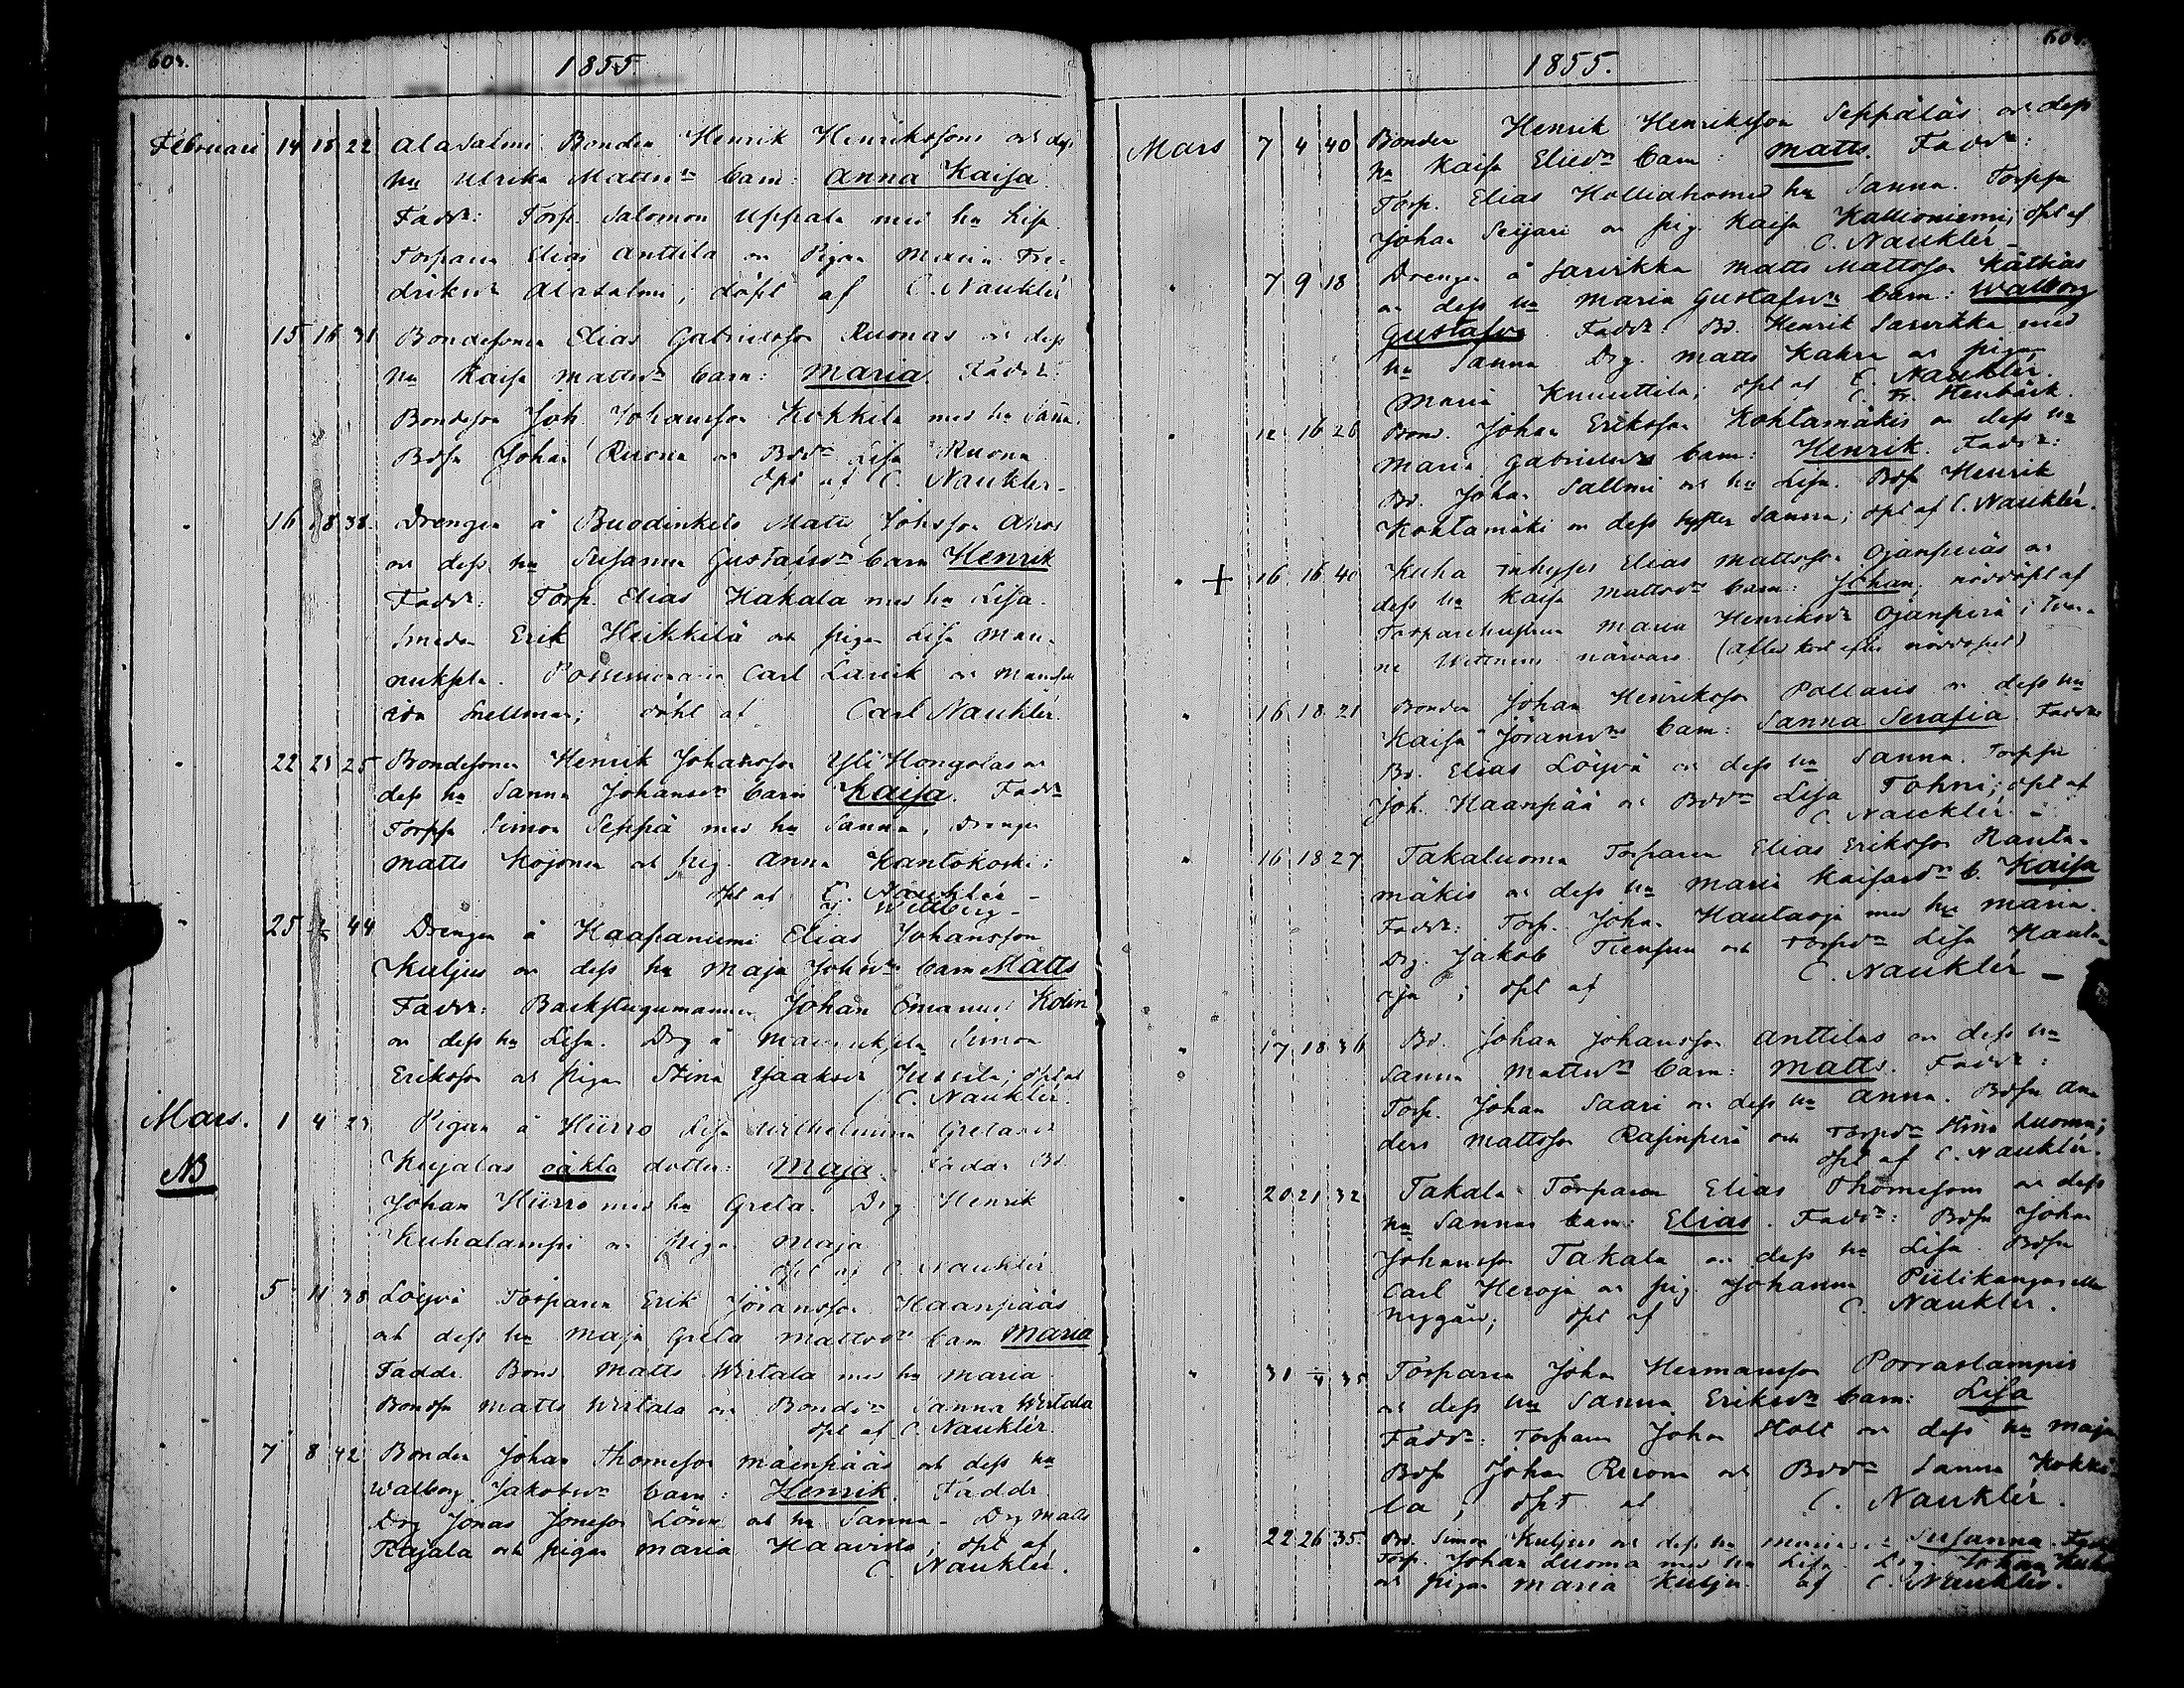 603.
1855.
Februari 14 15 22 Alasalmi Bonden Henrik Henrikssons och dess
hu Ulrika Mattsdr barn: Anna Kaisa.
Faddr: Torp. Salomon Uppala med hu Lisa
Torparen Elias Anttila och Pigan Maria Fre-
driksdr Alasalmi; döpt af C. Nauklér
15 16 31 Bondesonen Elias Gabrielsson Ruonas och dess
hu Kaisa Mattsdr barn: Maria. Faddr:
Bondeson Joh. Johansson Kokkila med hu Sanna.
Bdsn Johan Ruona och Bddr Lisa Ruona
dpt af C. Nauklér.
16 18 38 Drengen å Matts Johsson
och dess hu Susanna Gustafsdr barn Henrik
Faddr: Torp. Elias Hakala med hu Lisa.
Smeden Erik Heikkilä och pigan Lisa Man-
nuksela. Possessionaten Carl och
Snellman; döpt af Carl Nauklér.
22 25 25 Bondesonen Henrik Johansson Yli Hongolas och
dess hu Sanna Johansdr barn Kaisa. Faddr
Torpsn Simon Seppä med hu Sanna, Drengen
Matts Kojonen och pig. Anna Kantokoski;
dpt af C. Nauklér
25 44 Drengen å Haapaniemi Elias Johansson
Kuljus och dess hu Maja Johsdr barn Matts
Faddr: Backstugumannen Johan Emanuel Kolin
och dess hu Lisa. Drg å Mannuksela Simon
Eriksson och Pigan Stina Jaaksdr Jussila; dpt af
C. Nauklér.
Mars. 1 4 23 Pigan å Hürro Lisa Wilhelmina Gretasdr
NB Kujalas oäkta dotter: Maja. Faddr Bd.
Johan Hürro med hu Greta. Drg Henrik
Kuhalampi och Pigan Maja
dpt af C. Nauklér
5 11 38 Löyvä Torparen Erik Jöransson Haanpääs
och dess hu Maja Greta Mattsdr barn Maria
Faddr. Bond. Matts Wirtala med hu Maria
Bondsn Matts Wirtala och Bonddr Sanna Wirtala
dpt af C. Nauklér.
7 8 42 Bonden Johan Thomeson Mäenpääs och dess hu
Walborg Jakobsdr barn: Henrik. Faddr.
Drg Jonas och hu Sanna. Drg Matts
Rajala och pigan Maria Haavisto; dpt af
C. Nauklér.
1855.
Mars 7 4 40 Bonden Henrik Henriksson Seppäläs och dess
hu Kaisa Eliedr barn: Matts. Faddr:
Torp. Elias Holliaho med hu Sanna. Torpsn
Johan Seijari och pig. Kaisa Kallioniemi; dpt af
C. Nauklér
7 9 18 Drengen å Sarvikka Matts Mattsson Kätkäs
och dess hu Maria Gustafsdr barn: Walborg
Gustafva. Faddr: Bd. Henrik Sarvikka med
hu Sanna Drg. Matts Kahra och pigan
Maria Knuuttila; dpt af C. Nauklér.
12 16 26 Bond. Johan Eriksson Kohtamäkis och dess hu
Maria Gabrielsdr barn: Henrik. Faddr:
Bd. Johan Sallmi och hu Lisa. Bdsn Henrik
Kohtamäki och dess syster Sanna; dpt af C. Nauklér.
+ 16 16 40 Kuha inhyses Elias Mattsson Ojanperäs och
dess hu Kaisa Mattsdr barn: Johan; nöddöpt af
Torparehustrun Maria Henriksdr Ojanperä i tven-
ne wittnens närvaro. (Afled kort efter nöddopet)
16 18 21 Bonden Johan Henriksson Pollaris och dess hu
Kaisa Jöransdr barn: Sanna Serafia. Faddr
Bd. Elias Löyvä och dess hu Sanna. Torpsn
Joh. Haanpää och Bddr Lisa Tohni; dpt af
C. Nauklér.
16 18 27 Takaluoma Torparen Elias Eriksson Ranta-
mäkis och dess hu Maria Kaisasdr b. Kaisa
Faddr: Torp. Johan Hautaoja med hu Maria.
Drg. Jakob Tiensuu och Torpdr Lisa Hauta-
oja; dpt af C. Nauklér
17 18 36 Bd. Johan Johansson Anttilas och dess hu
Sanna Mattsdr barn: Matts. Faddr:
Torp. Johan Saari och dess hu Anna. Bdsn An-
ders Mattsson Rasinperä och Torpdr Stina Luoma;
dpt af C. Nauklér.
20 21 32 Takala Torparen Elias Thomessons och dess
hu Sannas barn: Elias. Faddr: Bdsn Johan
Johansson Takala och dess hu Lisa. Bdsn
Carl Heroja och pig. Johanna Piilikangas eller
Nygård; dpt af C. Nauklér.
31 4 35 Torparen Johan Hermansson Porraslampis
och dess hu Sanna Eriksdr barn: Lisa
Faddr: Torparen Johan Holt och dess hu Maja
Bdsn Johan Ruona och Bddr Sanna Kokki-
la; dpt af C. Nauklér.
22 26 35 Bd. Simon Kuljus och dess hu Susanna. Faddr
Torp. Johan Luoma med hu Lisa. Drg. Johan
och pigan Maria Kuljus af C. Nauklér.